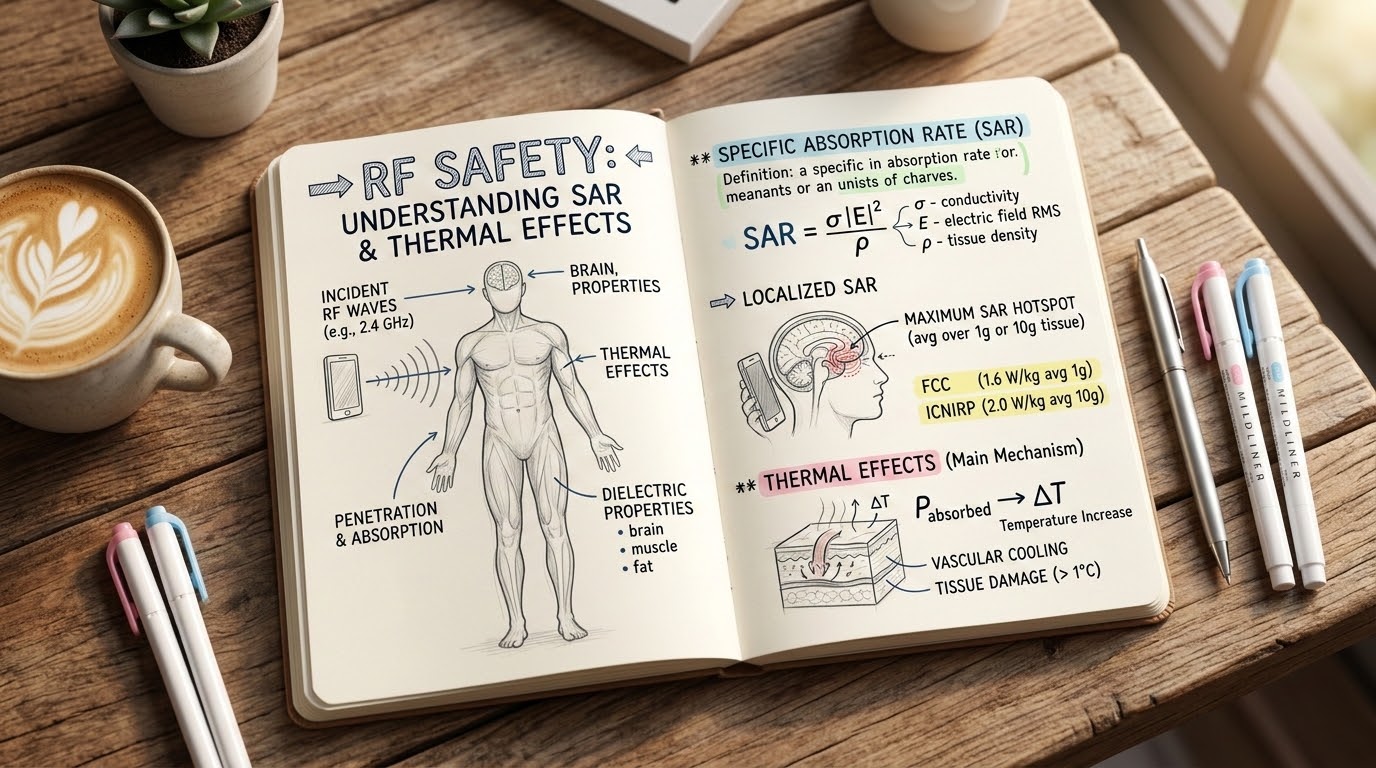 RF SAFETY:
UNDERSTANDING SAR
& THERMAL EFFECTS
INCIDENT
RF WAVES
(e.g., 2.4 GHz)
BRAIN,
PROPERTIES
THERMAL
EFFECTS
PENETRATION
& ABSORPTION
DIELECTRIC
PROPERTIES
• brain
• muscle
• fat
** SPECIFIC ABSORPTION RATE (SAR)
Definition: a specific in absorption rate for.
meanants or an unists of charves.
SAR = σ|E|² / ρ
σ - conductivity
E - electric field RMS
ρ - tissue density
LOCALIZED SAR
MAXIMUM SAR HOTSPOT
(avg over 1g or 10g tissue)
FCC (1.6 W/kg avg 1g)
ICNIRP (2.0 W/kg avg 10g)
** THERMAL EFFECTS (Main Mechanism)
ΔT
Pabsorbed → ΔT
Temperature Increase
VASCULAR COOLING
TISSUE DAMAGE (> 1°C)
MILDLINER
MILDLINER